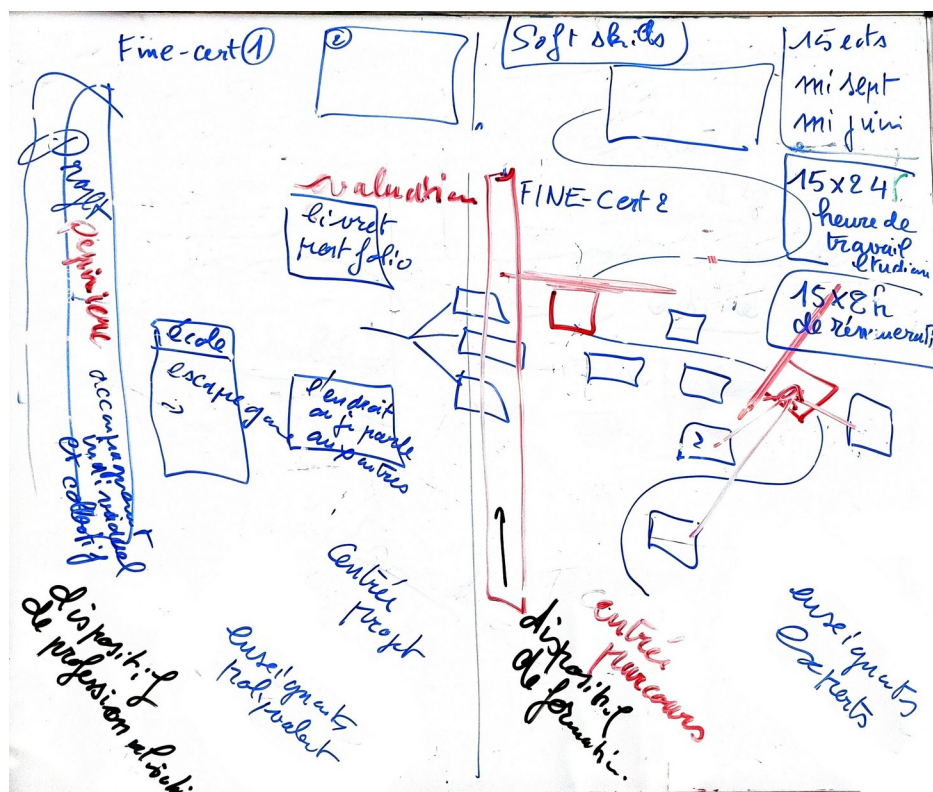 Fine-cert ①
②
Soft skills
15 ects
mi sept
mi juin
15x24
heure de
travail
etudian
15x2h
de rémunerati
Projet
pépinière
accompagnement
individuel
et collectif
evaluation
livret
port folio
FINE-Cert 2
école
escape game
l'endroit
où je parle
aux autres
2
centrée
projet
enseignants
polyvalent
dispositif
de professionnalisati
centrée
parcours
dispositif
de formation.
enseignants
experts